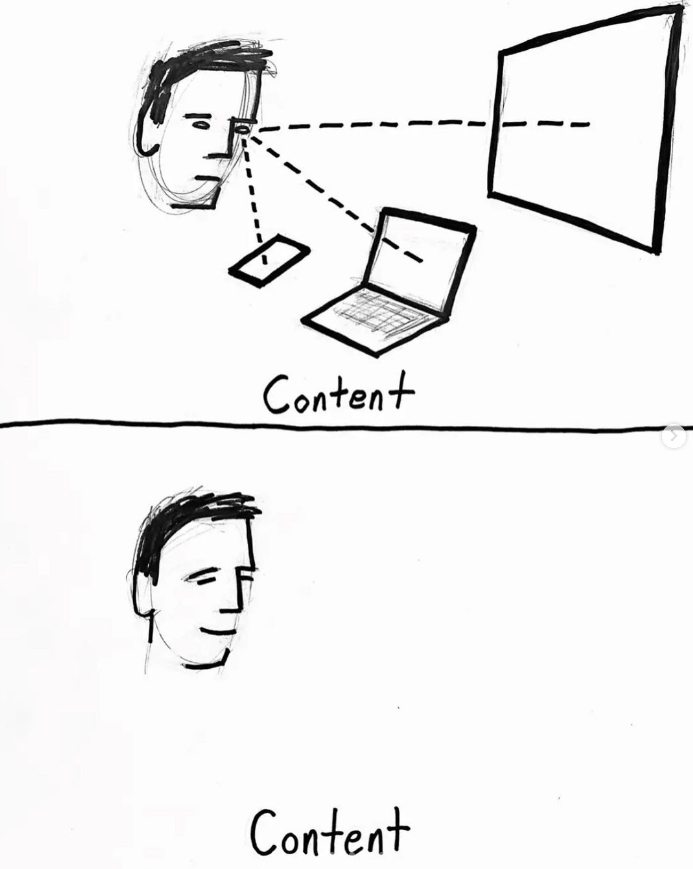 Content
Content